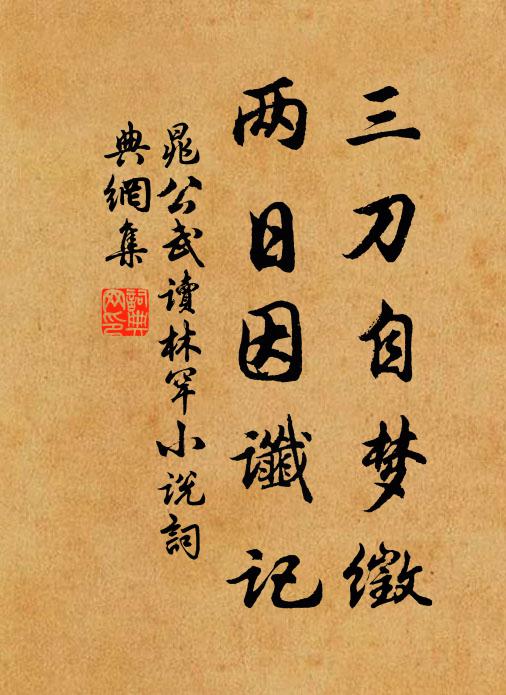 三刀自梦徵
两日因谶记
晁公武读林罕小说詞
典網集
詞典
网印